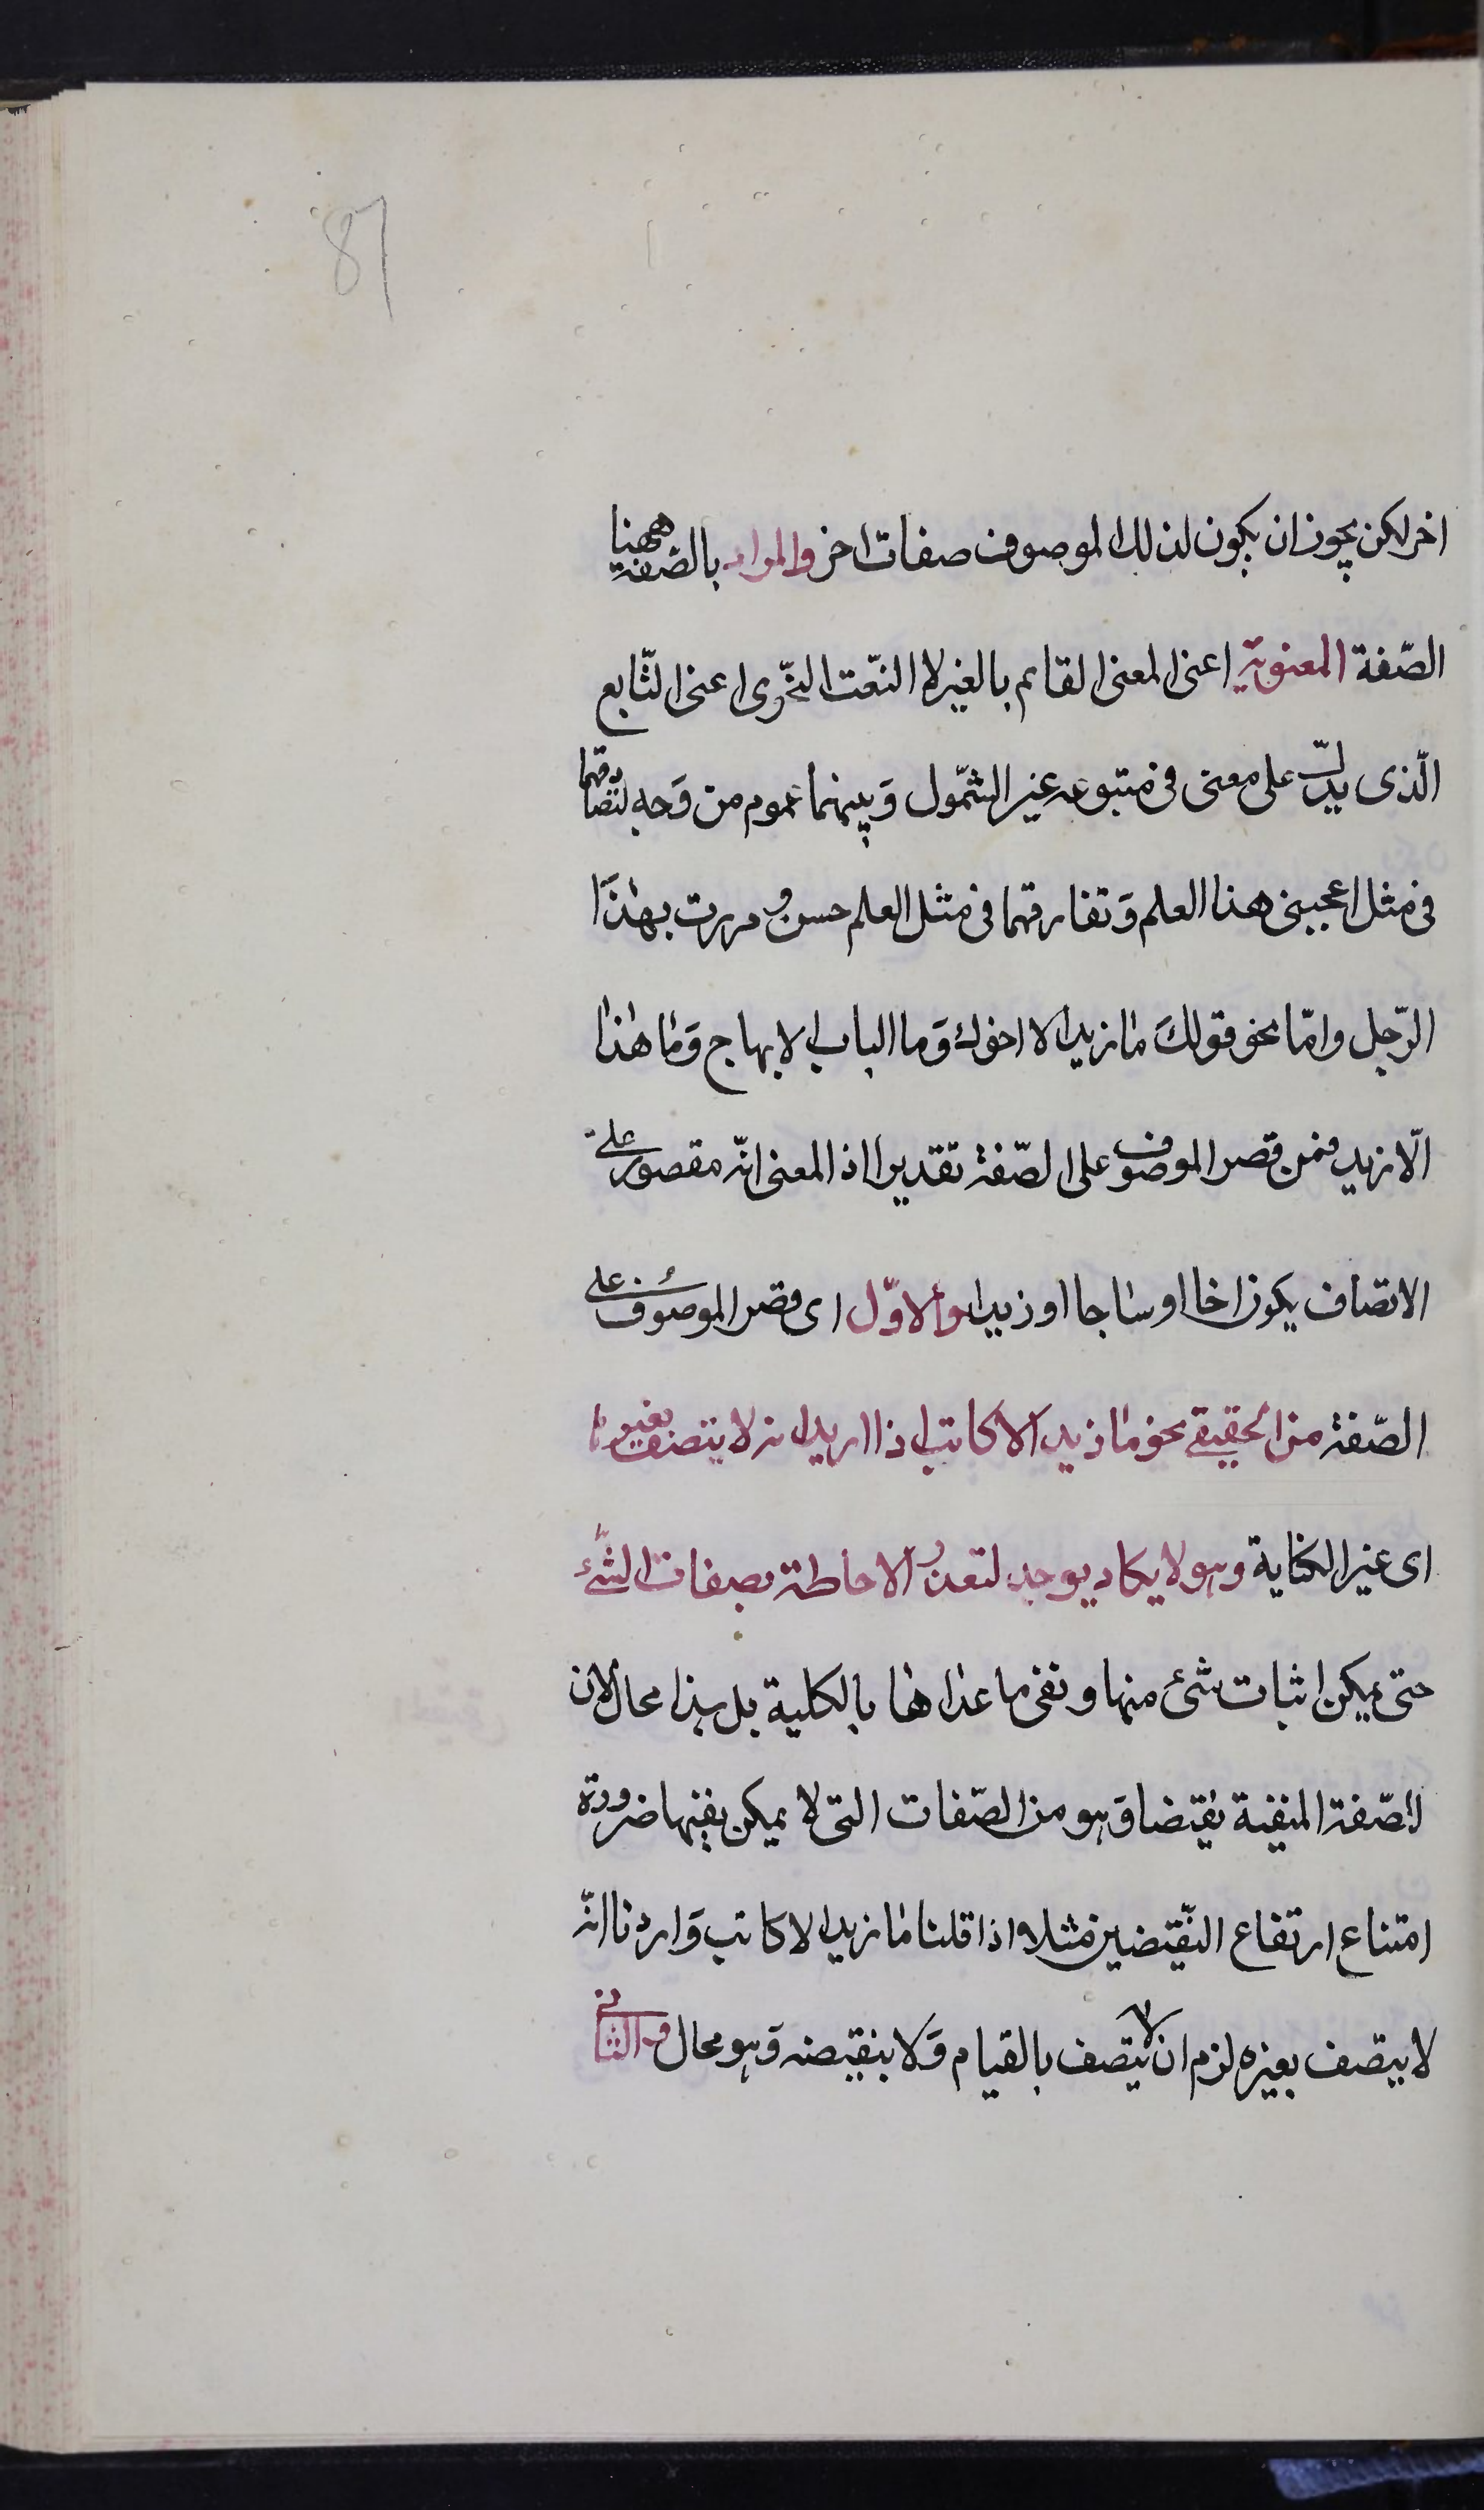 87
اخر لكن يجوز ان يكون لذلك الموصوف صفات اخر والمراد بالصفة ههنا
الصّفة المعنوية اعنى المعنى القائم بالغير لا النّعت النّحوى اعنى التّابع
الّذى يدلّ على معنى فى متبوعه غير الشمّول وَبينهما عموم من وَجه لتصادقهما
فى مثل اعجبنى هذا العلم وَتفارقهما فى مثل العلم حسن و مررت بهذَا
الرّجل وامّا نحو قولكَ ما زيد الا اخوك وَما الباب الا بهاج وَما هذا
الّا زيد فمن قصر الموصوف على الصّفة تقديرا اذ المعنى انّه مقصور على
الاتصاف بكون اخا او ساجا او زيدا والاوّل اى قصر الموصوف على
الصّفة من الحقيقى نحو ما زيد الا كاتب اذا اريد انه لا يتصف بغيرها
اى غير الكتابة وهو لا يكاد يوجد لتعذر الاحاطة بصفات الشّئ
حتى يمكن اثبات شئ منها و نفى ما عداها بالكلية بل هذا محال لان
للصّفة المنفية نقيضا وَهو من الصّفات التى لا يمكن نفيها ضرورة
امتناع ارتفاع النّقيضين مثلا اذا قلنا ما زيد الا كاتب وَاردنا انّه
لا يتصف بغيره لزم ان لا يتصف بالقيام وَلا بنقيضه وَهو محال والثانى